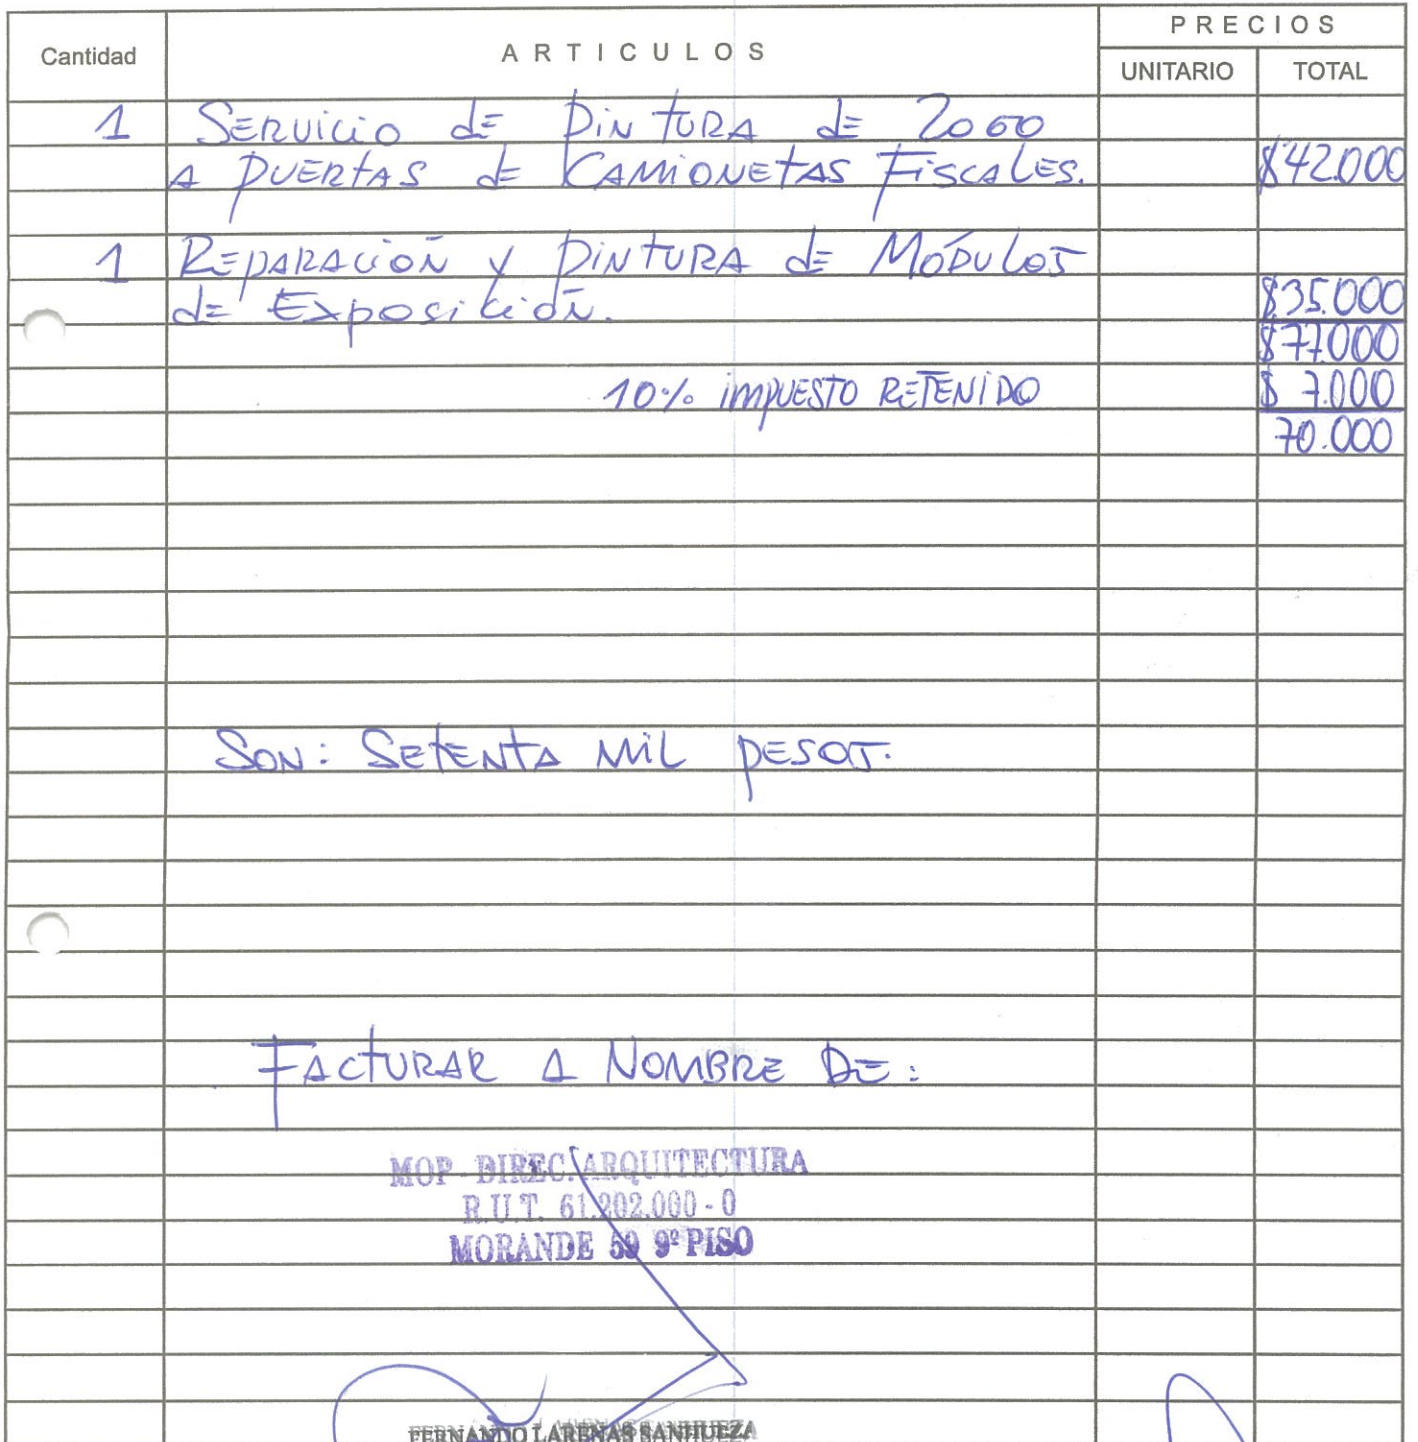 Cantidad ARTICULOS PRECIOS
UNITARIO TOTAL
1 Servicio de Pintura de
a Puertas de Camionetas Fiscales. $42.000
1 Reparación y Pintura de Módulos
de Exposición. $35.000
$77.000
10% impuesto RETENIDO $ 7.000
70.000
Son: Setenta Mil pesos.
Facturar a Nombre De:
MOP - DIREC. ARQUITECTURA
R.U.T. 61.202.000 - 0
MORANDE 59 9º PISO
FERNANDO LARENAS SANHUEZA